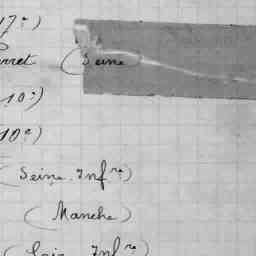 17e)
rret (Seine
10e)
10e)
(Seine Infre)
(Manche)
Infre)